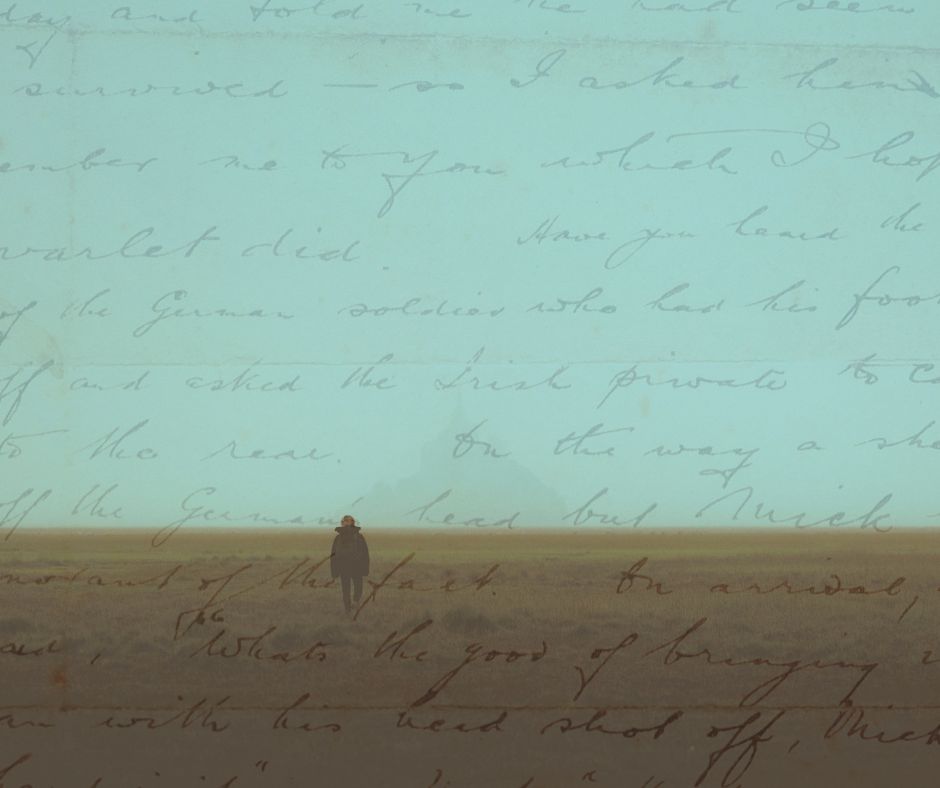 day and told me he had seen
survived — so I asked him
ember me to you which I hop
varlet did. Have you heard the
of the German soldier who had his foot
ff and asked the Irish private to ca
to the rear. On the way a she
off the German's head but Mick
norant of the fact. On arrival,
aid, "Whats the good of bringing
an with his head shot off, Mick